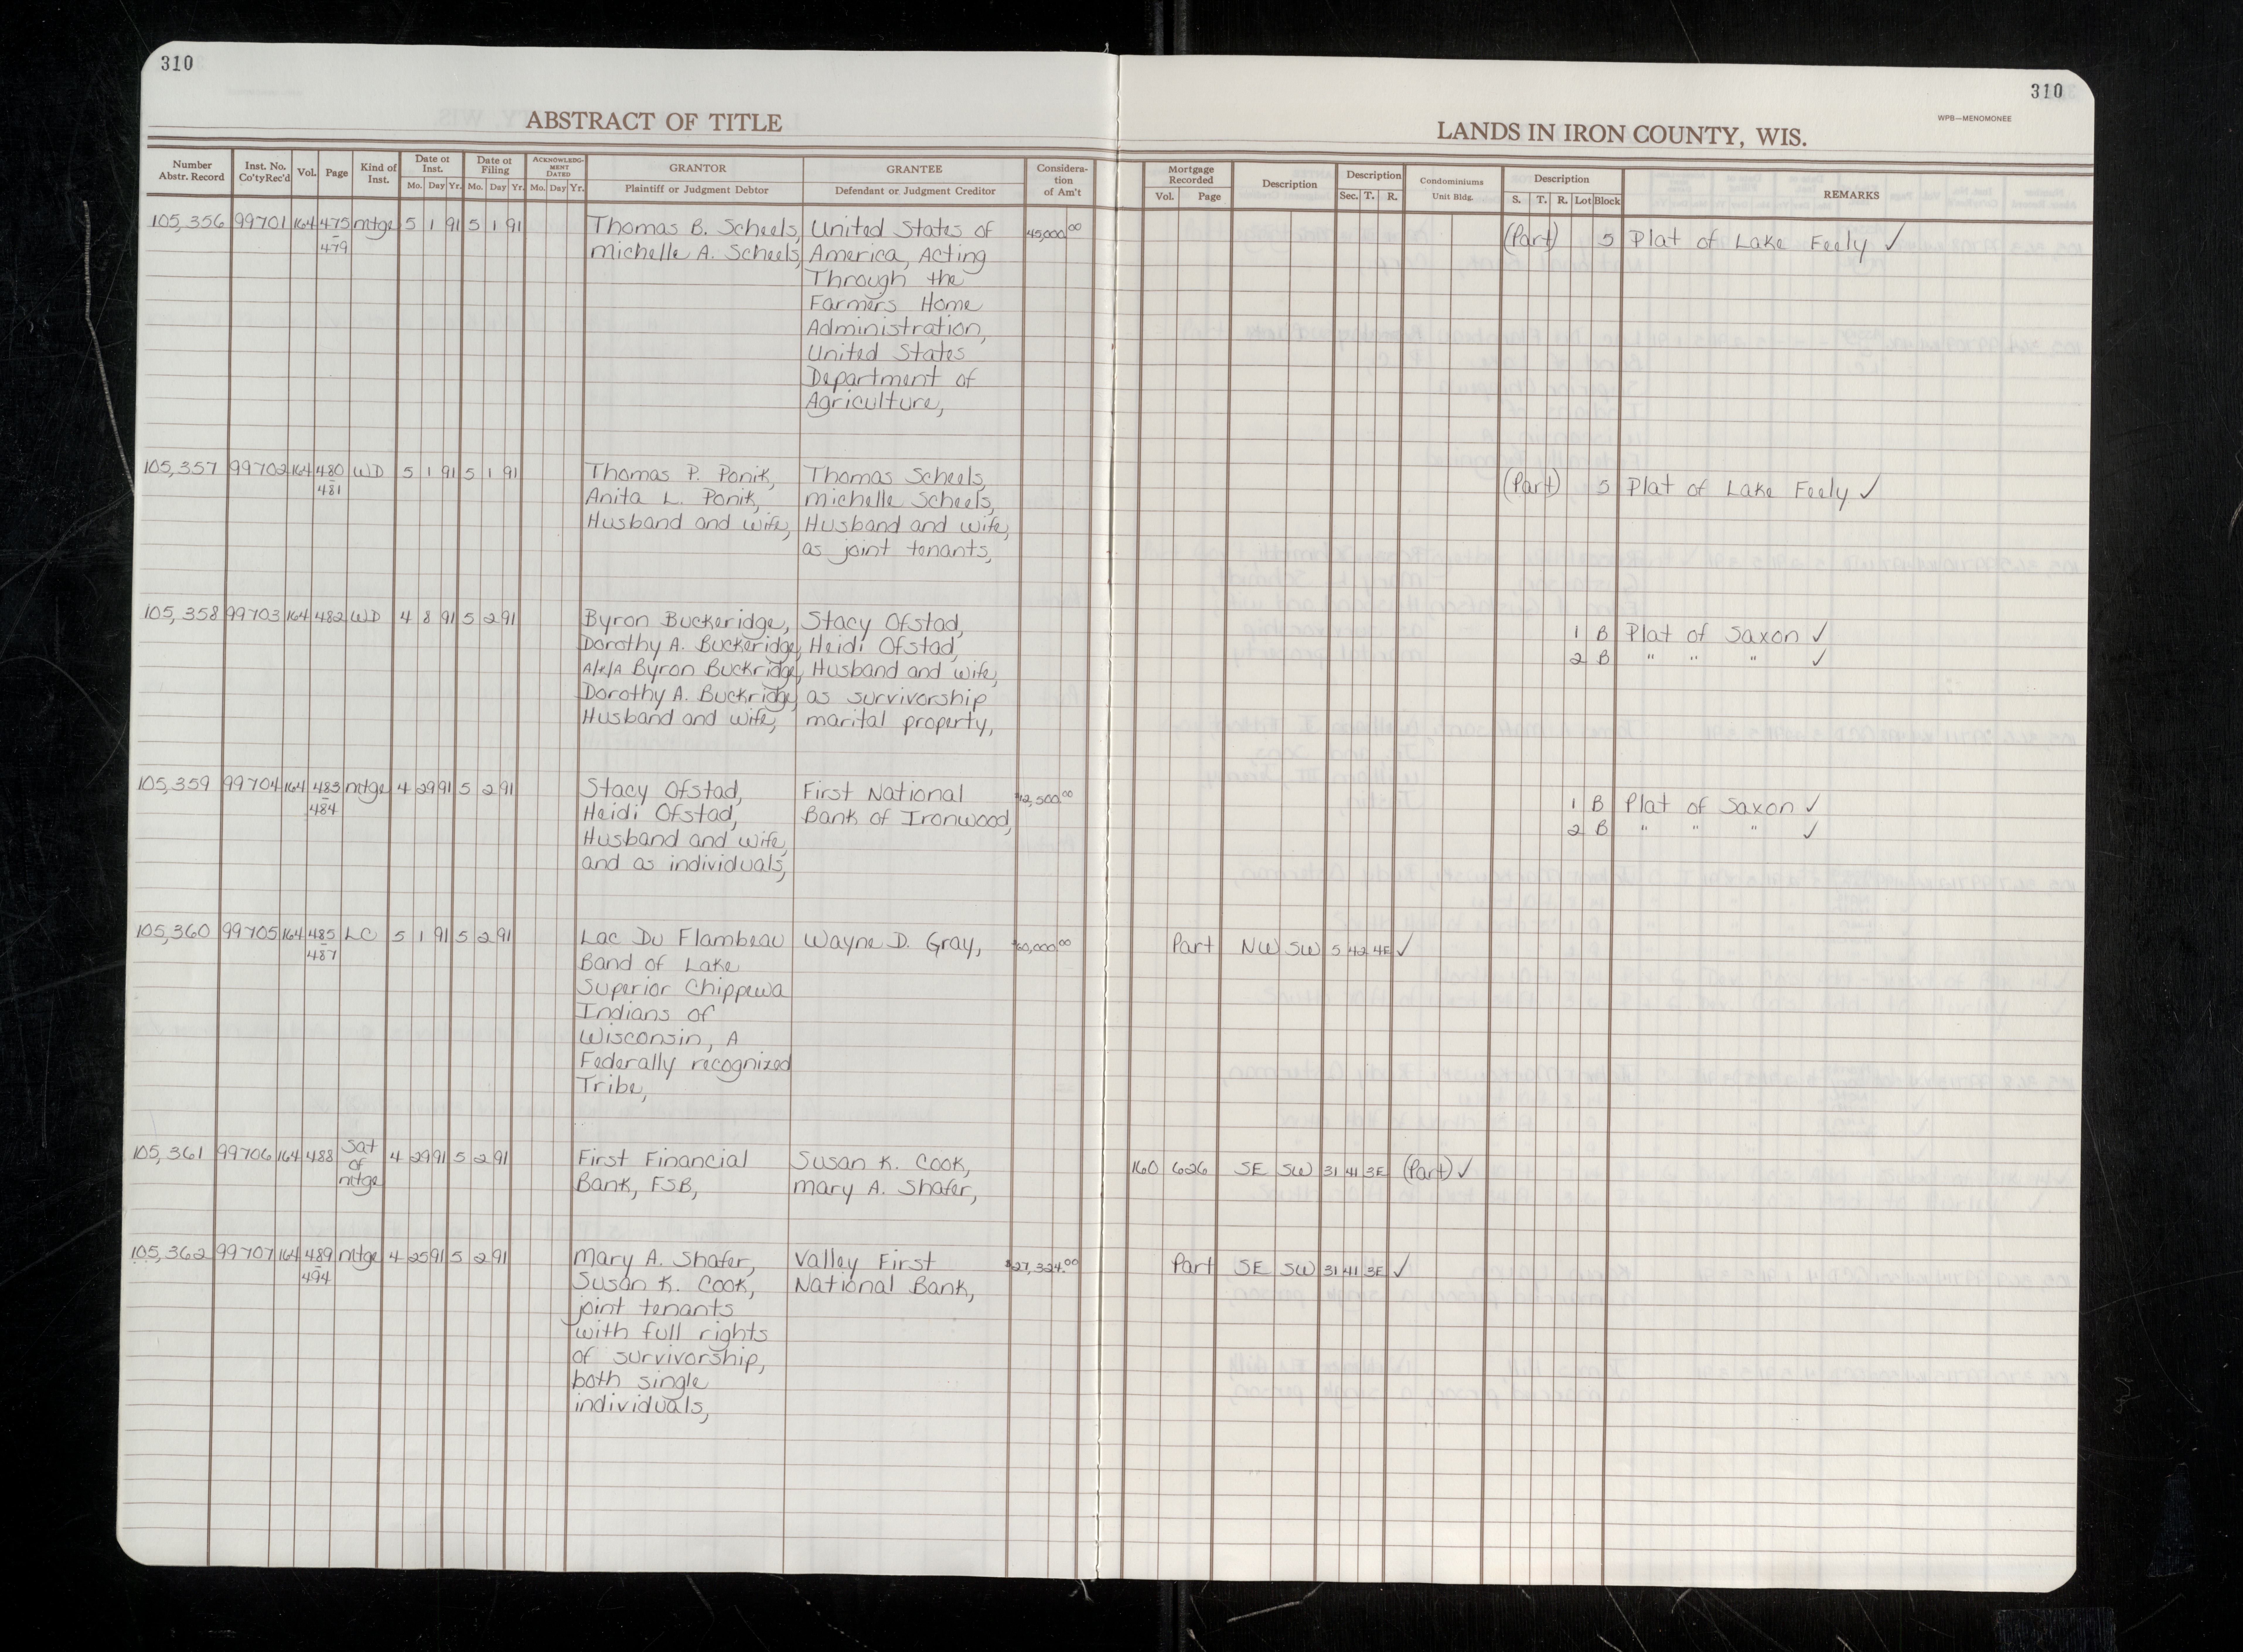 310
310
ABSTRACT OF TITLE
LANDS IN IRON COUNTY, WIS.
WPB—MENOMONEE
Number Abstr. Record | Inst. No. Co'ty Rec'd | Vol. | Page | Kind of Inst. | Date of Inst. Mo. Day Yr. | Date of Filing Mo. Day Yr. | ACKNOWLEDGMENT DATED Mo. Day Yr. | GRANTOR Plaintiff or Judgment Debtor | GRANTEE Defendant or Judgment Creditor | Consideration of Am't | Mortgage Recorded Vol. Page | Description | Description Sec. T. R. | Condominiums Unit Bldg. | Description S. T. R. Lot Block | REMARKS
105,356 99701 164 475 mtge 5 1 91 5 1 91 Thomas B. Scheels, United States of 45,000.00 (Part) 5 Plat of Lake Feely ✓
– 479 Michelle A. Scheels, America, Acting
Through the
Farmers Home
Administration,
United States
Department of
Agriculture,
105,357 99702 164 480 WD 5 1 91 5 1 91 Thomas P. Ponik, Thomas Scheels, (Part) 5 Plat of Lake Feely ✓
– 481 Anita L. Ponik, Michelle Scheels,
Husband and wife, Husband and wife,
as joint tenants,
105,358 99703 164 482 WD 4 8 91 5 2 91 Byron Buckeridge, Stacy Ofstad, 1 B Plat of Saxon ✓
Dorothy A. Buckeridge, Heidi Ofstad, 2 B " " " ✓
A/K/A Byron Buckridge, Husband and wife,
Dorothy A. Buckridge, as survivorship
Husband and wife, marital property,
105,359 99704 164 483 mtge 4 29 91 5 2 91 Stacy Ofstad, First National $12,500.00 1 B Plat of Saxon ✓
– 484 Heidi Ofstad, Bank of Ironwood, 2 B " " " ✓
Husband and wife,
and as individuals,
105,360 99705 164 485 LC 5 1 91 5 2 91 Lac Du Flambeau Wayne D. Gray, $60,000.00 Part NW SW 5 42 4E ✓
– 487 Band of Lake
Superior Chippewa
Indians of
Wisconsin, A
Federally recognized
Tribe,
105,361 99706 164 488 Sat of mtge 4 29 91 5 2 91 First Financial Susan K. Cook, 160 626 SE SW 31 41 3E (Part) ✓
Bank, FSB, Mary A. Shafer,
105,362 99707 164 489 mtge 4 25 91 5 2 91 Mary A. Shafer, Valley First $27,324.00 Part SE SW 31 41 3E ✓
– 494 Susan K. Cook, National Bank,
joint tenants
with full rights
of survivorship,
both single
individuals,